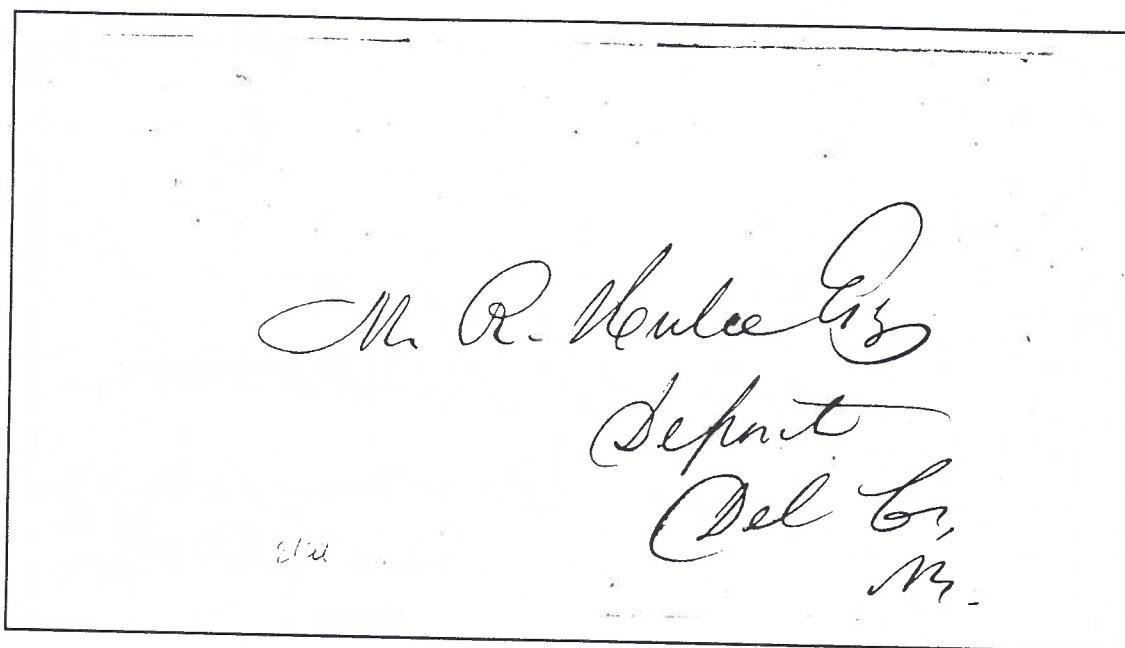 M. R. Hulce Esq
Deposit
Del Co,
NY.